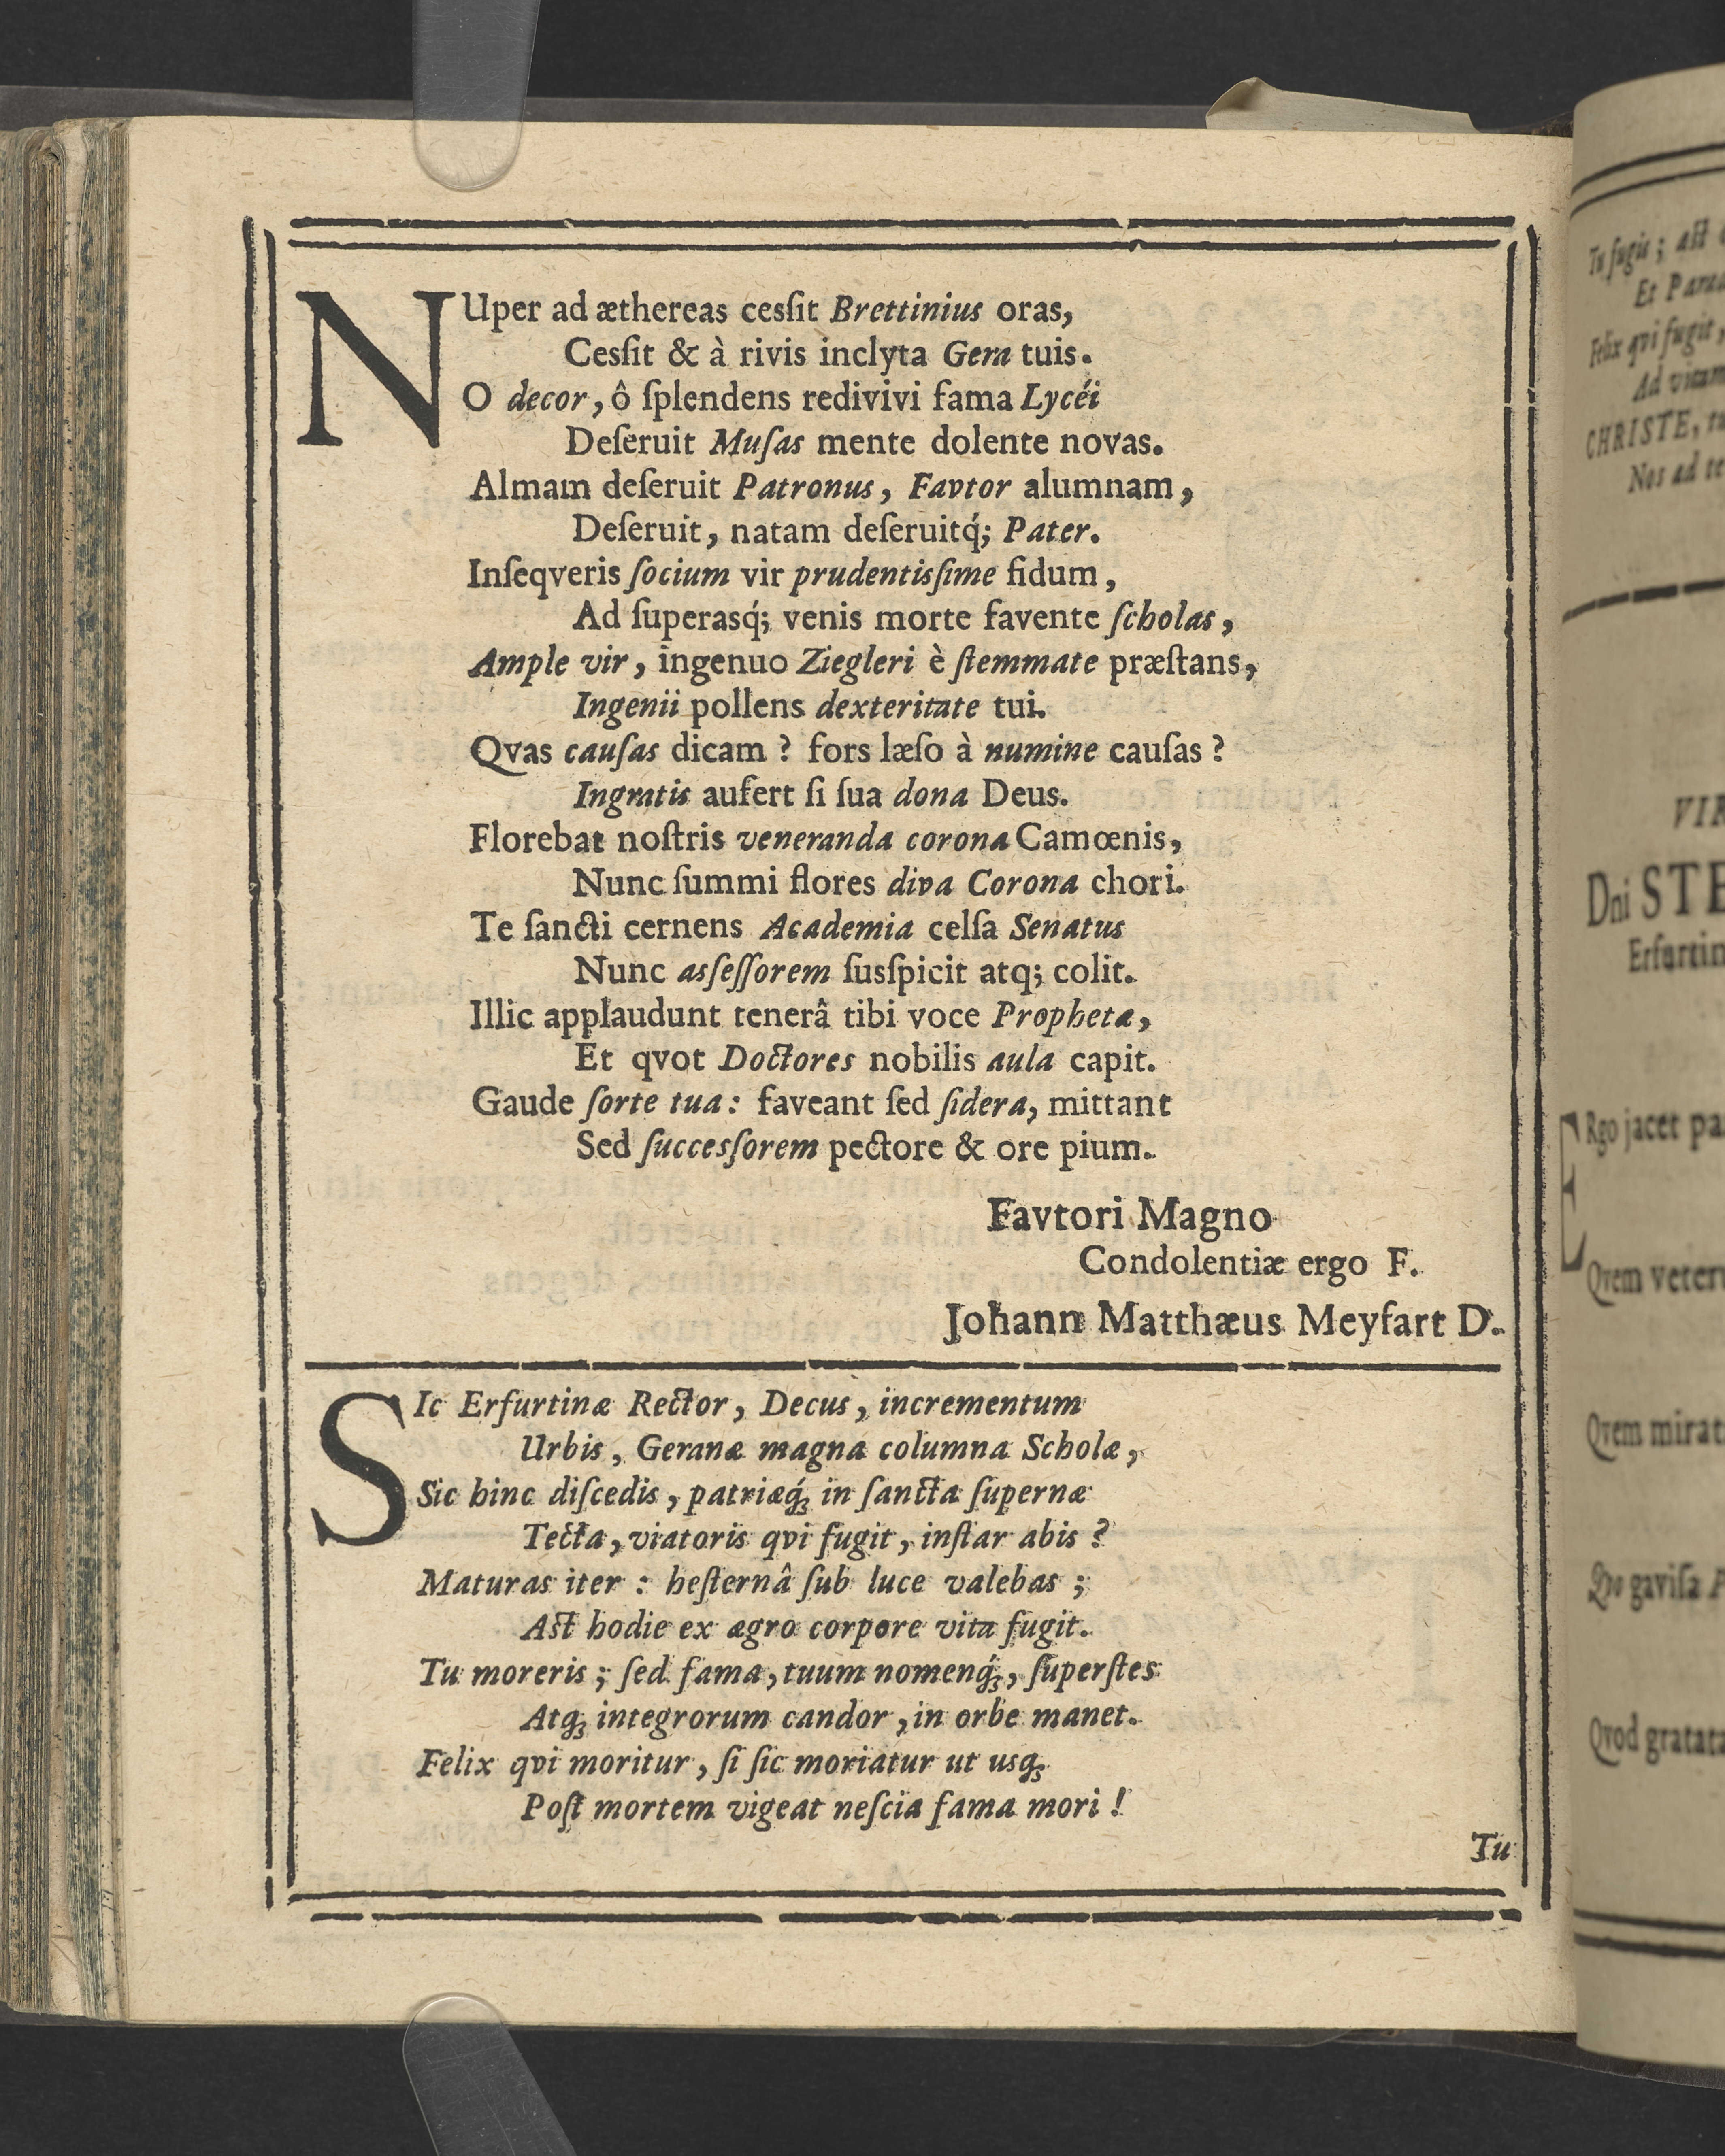 NUper ad æthereas cesſit Brettinius oras,
Cesſit & à rivis inclyta Gera tuis.
O decor, ô ſplendens redivivi fama Lycéi
Deſeruit Muſas mente dolente novas.
Almam deſeruit Patronus, Favtor alumnam,
Deſeruit, natam deſeruitq́; Pater.
Inſeqveris ſocium vir prudentisſime fidum,
Ad ſuperasq́; venis morte favente ſcholas,
Ample vir, ingenuo Ziegleri è ſtemmate præſtans,
Ingenii pollens dexteritate tui.
Qvas cauſas dicam? fors læſo à numine cauſas?
Ingratis aufert ſi ſua dona Deus.
Florebat noſtris veneranda corona Camœnis,
Nunc ſummi flores diva Corona chori.
Te ſancti cernens Academia celſa Senatus
Nunc asſeſſorem ſusſpicit atq; colit.
Illic applaudunt tenerâ tibi voce Propheta,
Et qvot Doctores nobilis aula capit.
Gaude ſorte tua: faveant ſed ſidera, mittant
Sed ſuccesſorem pectore & ore pium.
Favtori Magno
Condolentiæ ergo F.
Johann Matthæus Meyfart D.
SIc Erfurtinæ Rector, Decus, incrementum
Urbis, Geranæ magna columna Scholæ,
Sic hinc diſcedis, patriæq́; in ſancta ſupernæ
Tecta, viatoris qvi fugit, inſtar abis?
Maturas iter: heſternâ ſub luce valebas;
Aſt hodie ex ægro corpore vita fugit.
Tu moreris; ſed fama, tuum nomenq́;, ſuperſtes
Atq; integrorum candor, in orbe manet.
Felix qvi moritur, ſi ſic moriatur ut usq;
Poſt mortem vigeat neſcia fama mori!
Tu
Tu fugis; aſt
Et Para
Felix qvi fugit,
Ad vitam
CHRISTE, tu
Nos ad te
VIR
Dni STE
Erfurtin
ERgo jacet pa
Qvem veter
Qvem mirat
Qvo gaviſa
Qvod gratat